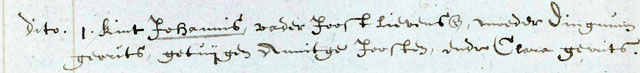 dito. 1. kint Johannis, vader Joost lievens, moeder Dingmen
geerits, getuijgen Annitge Joosten, ende Clara gerrits.